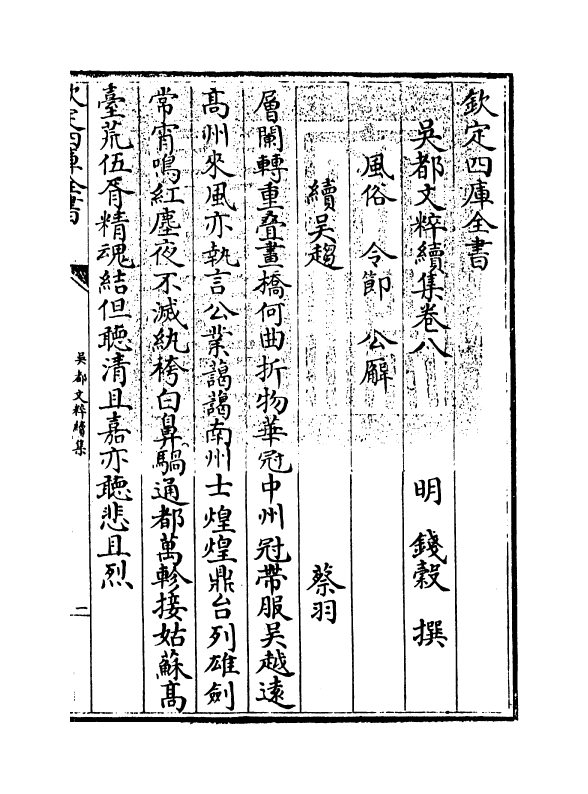 欽定四庫全書
吳都文粹續集卷八
明 錢榖 撰
風俗 令節 公廨
續吳趨 蔡羽
層闌轉重叠畫橋何曲折物華冠中州冠帶服吳越遠
髙州來風亦執言公業藹藹南州士煌煌鼎台列雄劍
常宵鳴紅塵夜不滅紈袴白鼻騧通都萬軫接姑蘇髙
臺荒伍胥精魂結但聽清且嘉亦聽悲且烈
欽定四庫全書
吳都文粹續集
一